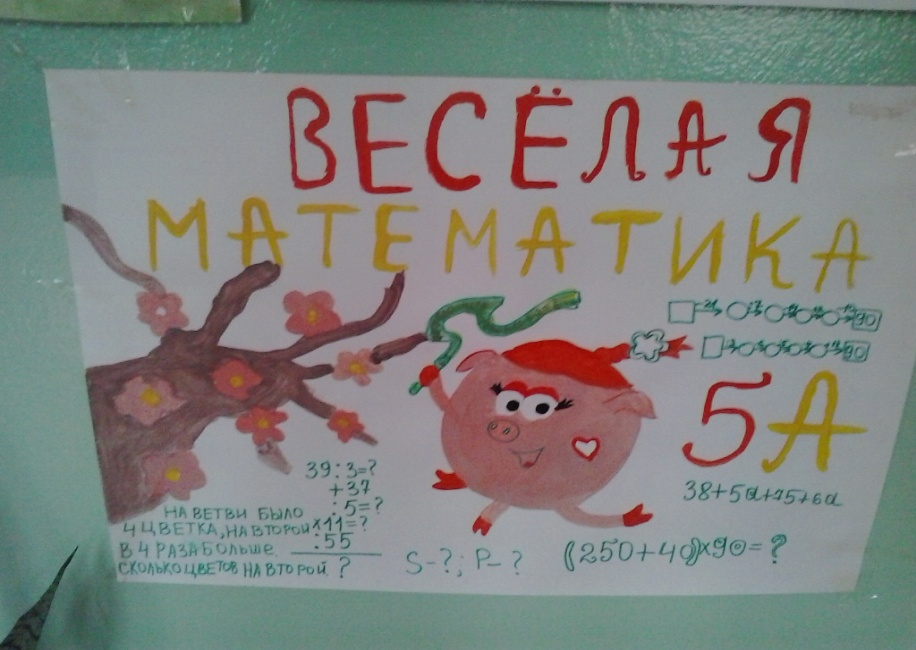 ВЕСЁЛАЯ
МАТЕМАТИКА
90
90
5А
38+5а+75+6а
39:3=?
+37
:5=?
×11=?
:55
НА ВЕТВИ БЫЛО
4 ЦВЕТКА, НА ВТОРОЙ
В 4 РАЗА БОЛЬШЕ.
СКОЛЬКО ЦВЕТОВ НА ВТОРОЙ?
S-?; P-?
(250+40)×90=?